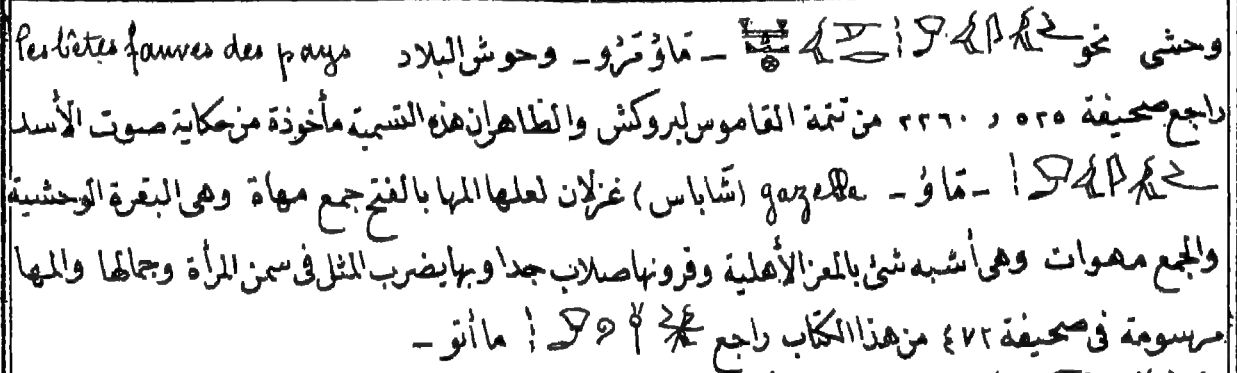 وحشى نحو - مَاوُ مَرُو - وحوش البلاد les bêtes fauves des pays
راجع صحيفة ٥٢٥ و ٢٢٦٠ من تتمة القاموس لبروكش والظاهران هذه التسمية مأخوذة من حكاية صوت الأسد
- مَاوُ - gazelle (شاباس) غزلان لعلها المها بالفتح جمع مهاة وهى البقرة الوحشية
والجمع مهوات وهى أشبه شئ بالمعز الأهلية وقرونها صلاب جدا وبها يضرب المثل فى سمن المرأة وجمالها والمها
مرسومة فى صحيفة ٤٧٢ من هذا الكتاب راجع ماأتو -